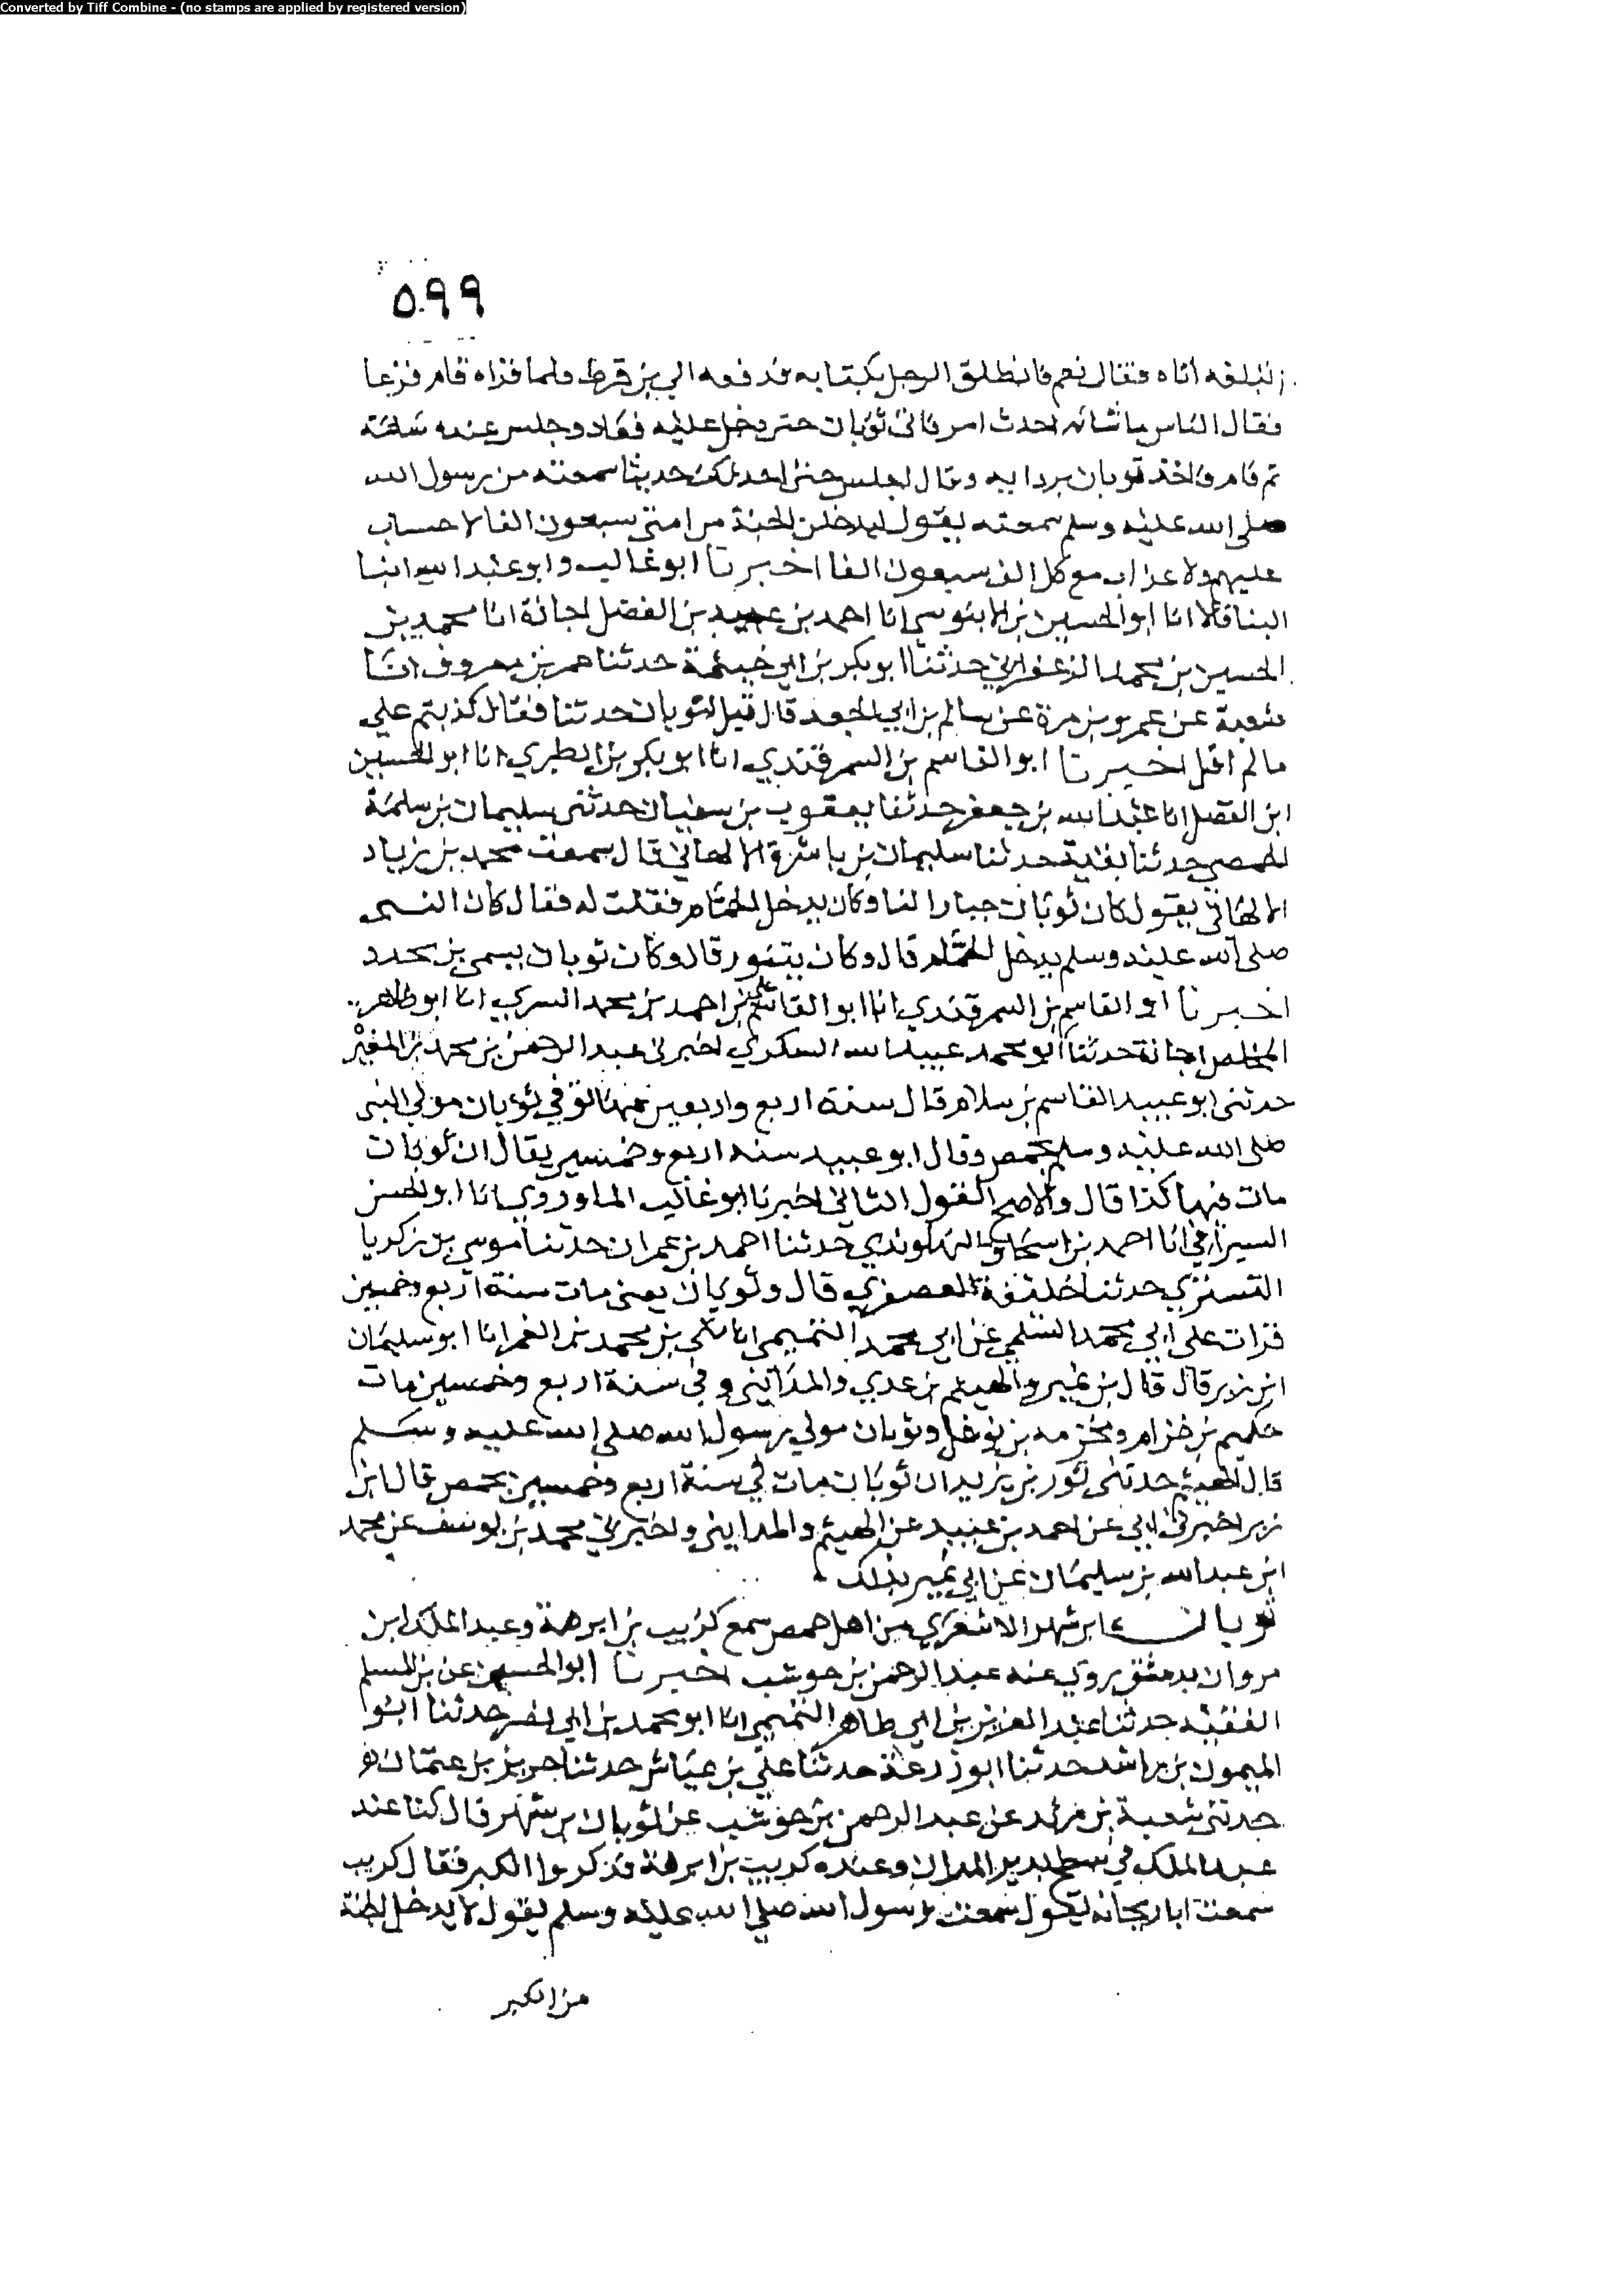 Converted by Tiff Combine - (no stamps are applied by registered version)
٥٩٩
تبلغه اناه فقال نعم فانطلق الرجل بكتابه فدفعه الي بن قرط فلما قراه قام فزعا
فقال الناس ما شانه احدث امر فاتى ثوبان حتى دخل عليه فعاد وجلس عنده ساعة
ثم قام فاخذ ثوبان بردايه وقال اجلس حتى احدثك حديثا سمعته من رسول الله
صلى الله عليه وسلم سمعته يقول ليدخلن الجنة من امتى سبعون الفا لا حساب
عليهم ولا عذاب مع كل الف سبعون الفا اخبرنا ابو غالب وابو عبد الله ابنا
البنا قالا انا ابو الحسين بن الابنوسي انا احمد بن عبيد بن الفضل اجازة انا محمد بن
الحسين بن محمد الزعفراني حدثنا ابو بكر بن ابي خيثمة حدثنا هرون بن معروف انا
شعبة عن عمرو بن مرة عن سالم بن ابي الجعد قال قيل لثوبان حدثنا فقال كذبتم علي
ما لم اقل اخبرنا ابو القاسم بن السمرقندي انا ابو بكر بن الطبري انا ابو الحسين
ابن الفضل انا عبد الله بن جعفر حدثنا يعقوب بن سفيان حدثنى سليمان بن سلمة
الحمصي حدثنا بقية حدثنا سليمان بن ناشرة الالهاني قال سمعت محمد بن زياد
الالهاني يقول كان ثوبان جارا لنا وكان يدخل الحمام فقلت له فقال كان النبي
صلى الله عليه وسلم يدخل الحمام قال وكان يتنور قال وكان ثوبان يسمى بن بجدد
اخبرنا ابو القاسم بن السمرقندي انا ابو القاسم علي بن احمد بن محمد السري انا ابو طاهر
المخلص اجازة حدثنا ابو محمد عبيد الله السكري اخبرنى عبد الرحمن بن محمد بن المغيرة
حدثنى ابو عبيد القاسم بن سلام قال سنة اربع واربعين فيها توفي ثوبان مولي النبى
صلى الله عليه وسلم بحمص وقال ابو عبيد سنة اربع وخمسين يقال ان ثوبان
مات فيها كذا قال والاصح القول الثاني اخبرنا ابو غالب الماوردي انا ابو الحسن
السيرافي انا احمد بن اسحاق النهاوندي حدثنا احمد بن عمران حدثنا موسي بن زكريا
التستري حدثنا خليفة العصفري قال وثوبان يعنى مات سنة اربع وخمسين
قرات على ابي محمد السلمي عن ابي محمد التميمي انا مكي بن محمد بن الغمر انا ابو سليمان
ابن زبر قال قال بن نمير والهيثم بن عدي والمدايني وفي سنة اربع وخمسين مات
حكيم بن حزام ومخرمه بن نوفل وثوبان مولي رسول الله صلى الله عليه وسلم
قال الهيثم حدثنى ثور بن يزيد ان ثوبان مات في سنة اربع وخمسين بحمص قال بن
زبر اخبرني ابي عن احمد بن عبيد عن الهيثم والمدايني واخبرني محمد بن يوسف عن محمد
ابن عبد الله بن سليمان عن ابي نمير بذلك
ثوبان بن شهر الاشعري من اهل حمص سمع كريب بن ابرهة وعبد الملك ابن
مروان بدمشق يروي عنه عبد الرحمن بن حوشب اخبرنا ابو الحسن بن المسلم
الفقيه حدثنا عبد العزيز بن ابي طاهر التميمي انا ابو محمد بن ابي نصر حدثنا ابو
الميمون بن راشد حدثنا ابو زرعة حدثنا علي بن عياش حدثنا حريز بن عثمان
حدثنى شعبة بن مرثد عن عبد الرحمن بن حوشب عن ثوبان بن شهر قال كنا عند
عبد الملك في سطح بدير المران وعنده كريب بن ابرهة فذكروا الكبر فقال كريب
سمعت ابا ريحانه يقول سمعت رسول الله صلى الله عليه وسلم يقول لا يدخل الجنة
من الكبر